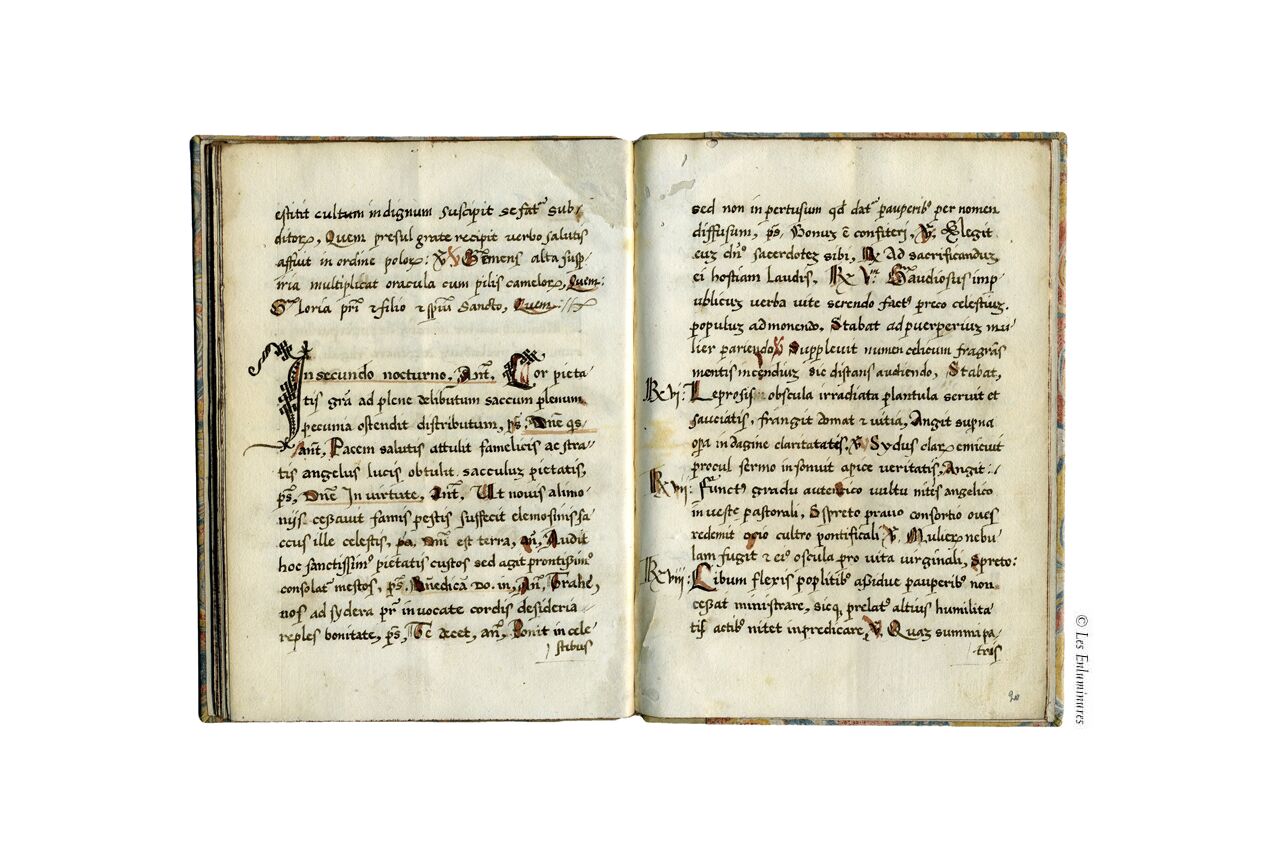 estitit cultum indignum suscipit se fat᷑ sub
ditoꝝ, Quem presul grate recipit verbo salutis
affuit in ordine poloꝝ: ℣
iria multiplicat oracula cum pilis cameloꝝ, Quem:
Gloria pr̄i ⁊ filio ⁊ sp̄ui Sancto, Quem:
In secundo nocturno, Ant̄. Cor pieta
tis grā ad plene delibutum saccum plenum
pecunia ostendit distributum, ps̄. Dn̄e qs
Ant̄. Pacem salutis attulit famelicis ac stra
tis angelus lucis obtulit sacculuz pietatis,
ps̄, Dn̄e In virtute, Ant̄. Ut novis alimo
niis cessavit famis pestis suffecit elemosinis sa
ccus ille celestis, ps. Dn̄i est terra, an̄. Audit
hoc sanctissim⁹ pietatis custos sed agit prontissim⁹
consolat᷑ mestos, ps̄. Bn̄edicā Do. in, An̄. Trahe,
nos ad sydera pr̄ invocate cordis desideria
reples bonitate, ps̄, Te decet, an̄. Ponit in cele
stibus
sed non in pertusum qd̄ dat᷑ pauperib⁹ per nomen
diffusum, ps̄. Bonus ē confiteri, ℣. Elegit
euz dn̄s sacerdotez sibi, ℟ Ad sacrificanduz
ei hostiam laudis, ℟ Gaudiosus imp
ublicuz verba vite serendo fact⁹ preco celestiuz.
populuz admonendo, Stabat ad puerperiuz mu
lier pariendo ℣ Supplevit numen celicum fragrās
mentis incendiuz sic distans audiendo, Stabat,
℟ vi: Leprosis obscula irradiata plantula servit et
sauciatis, frangit domat ⁊ vitia, Angit supna
opa indagine claritatatis, ℣ Sydus claꝝ emicuit
procul sermo insonuit apice veritatis, Angit:
℟ vii: Funct⁹ gradu autentico vultu nites angelico
in veste pastorali, Spreto pravo consortio oves
redemit ocio cultro pontificali ℣. Mulier nebu
lam fugit ⁊ ei⁹ oscula pro vita virginali, Spreto:
℟ viii: Libum flexis poplitib⁹ assidue pauperib⁹ non
cessat ministrare, sicq prelat⁹ altius humilita
tis actib⁹ nitet in predicare, ℣. Quaz summi pa
tris
© Les Enluminures